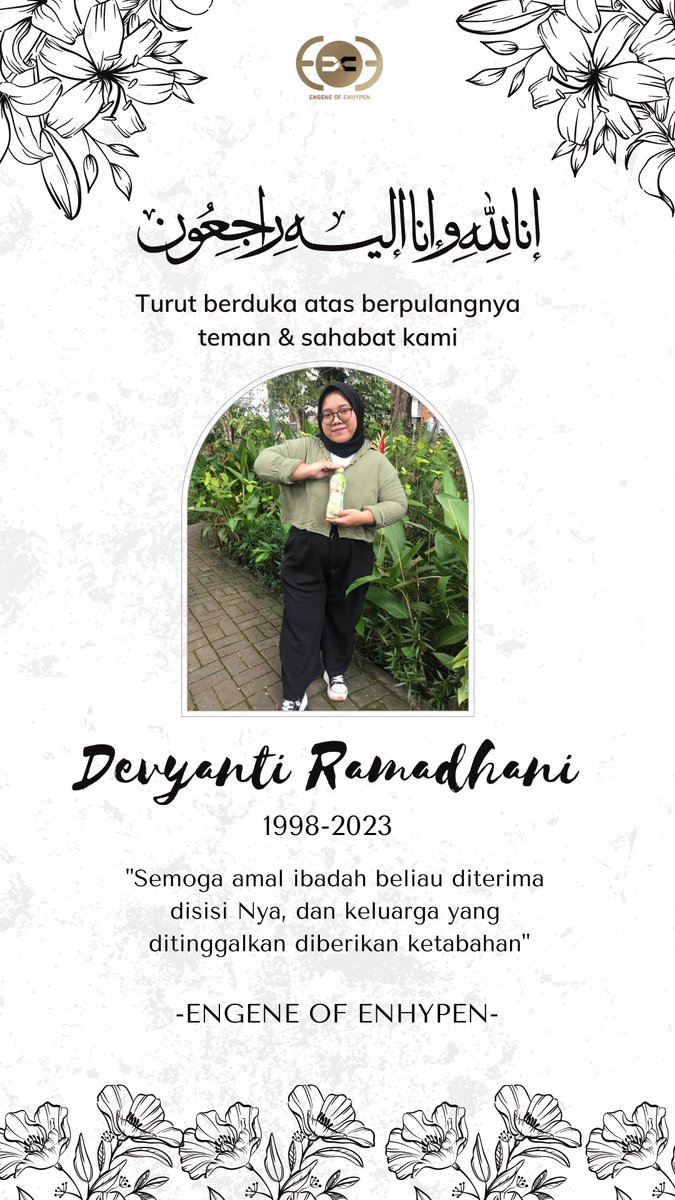 ENGENE OF ENHYPEN
إنا لله وإنا إليه راجعون
Turut berduka atas berpulangnya
teman & sahabat kami
Devyanti Ramadhani
1998-2023
"Semoga amal ibadah beliau diterima
disisi Nya, dan keluarga yang
ditinggalkan diberikan ketabahan"
-ENGENE OF ENHYPEN-